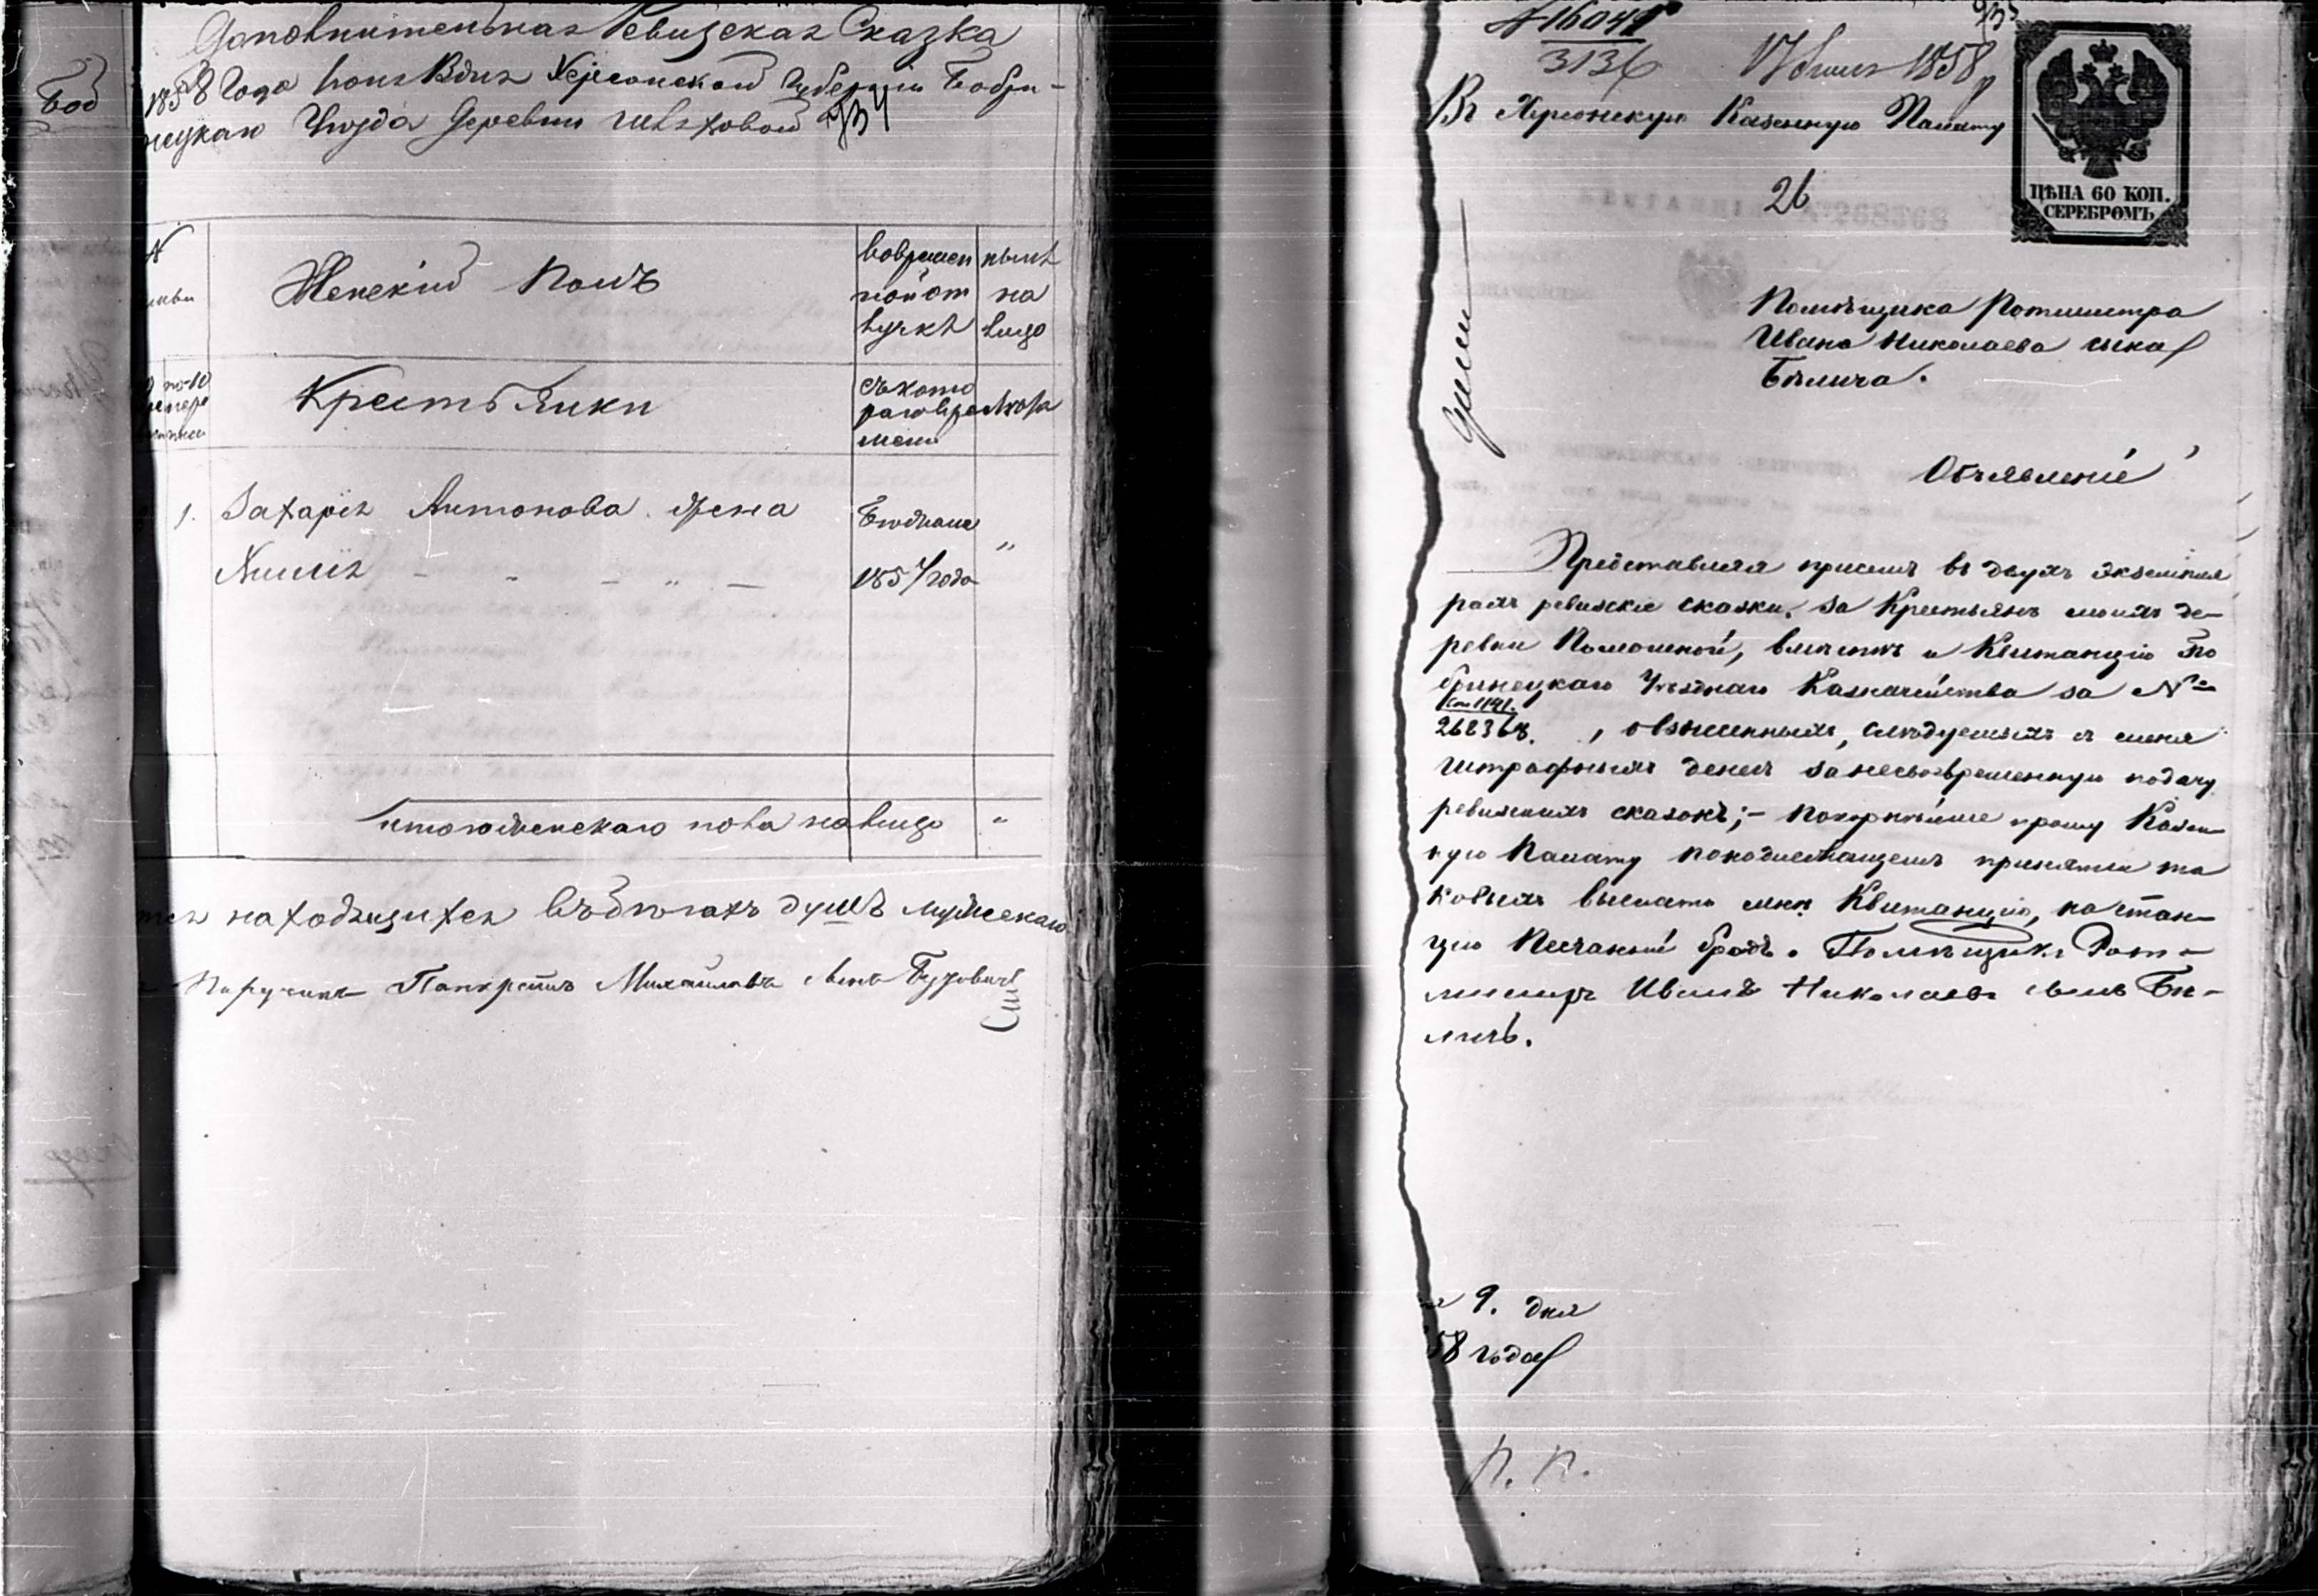 Дополнительная Ревизская Сказка
1858 Года Іюня Вдня Херсонской Губерніи Бобри-
нецкаго Уезда Деревни
934
Женскій Полъ
вовремен
ной от
лучкѣ
нынѣ
на
лицо
Крестьянки
съкото
раговре
мени
лѣта
1. Захарія Антонова жена
Бѣжала
1857 года
"
итогоженскаго пола налицо "
находящихся въбѣгахъ душъ мужскаго
Поручикъ Панкратій Михайловъ сынъ
Боб
№16041
3136
Іюня 1858
935
Въ Херсонскую Казенную Палату
26
ЦѢНА 60 КОП.
СЕРЕБРОМЪ.
КВИТАНЦІЯ № 268368
Помѣщика Ротмистра
Ивана Николаева сына
Бѣлича.
Объявленіе
Представляя присемъ въ двухъ экземпля
рахъ ревизкіе сказки, за Крестьянъ моихъ де-
ревни Помошной, вмѣстѣ и Квитанцію Бо
бринецкаго Уѣзднаго Казначейства за №
268368. , о взысканныхъ, слѣдуемыхъ съ меня
штрафныхъ денегъ занесвоевременную подачу
ревизскихъ сказокъ;- покорнѣйше прошу Казен
ную Палату понадлежащемъ принятіи та
ковыхъ выслать мнѣ Квитанцію, настан-
цію Песчаный бродъ. Помѣщикъ Рот-
мистръ Иванъ Николаевъ сынъ Бѣ-
личъ.
9. дня
58 года
П. П.